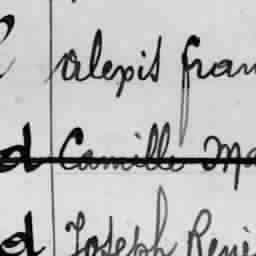 alexis fran
d Camille Ma
d Joseph René